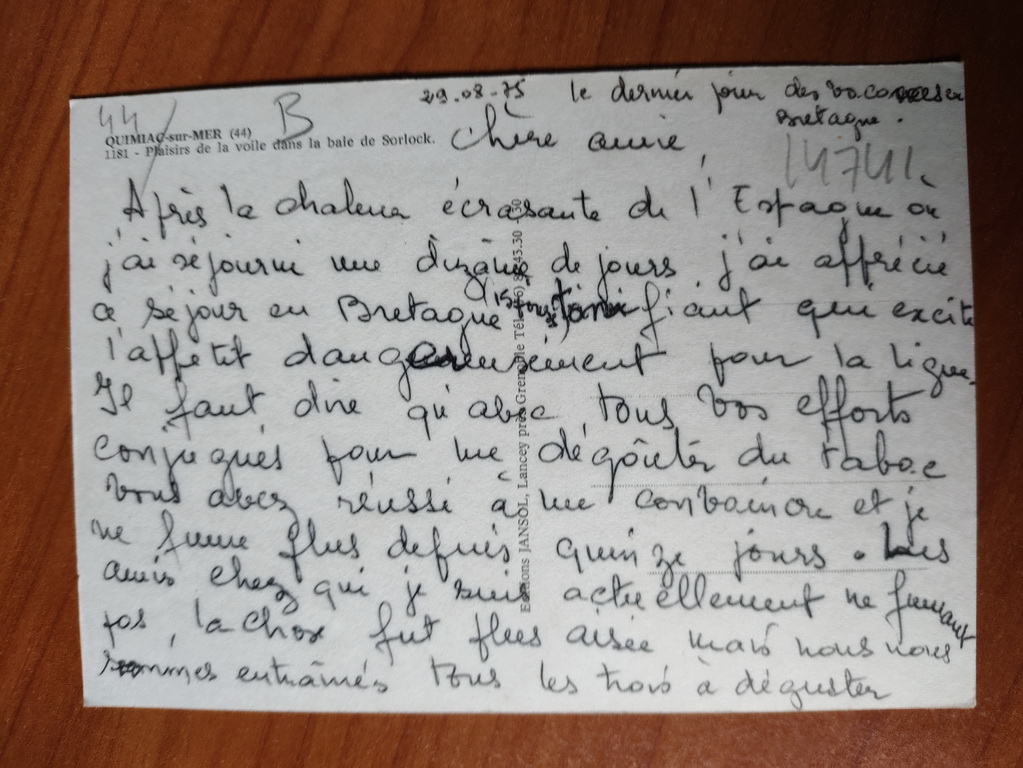 44 B
29.08-75 le dernier jour des vacances en
Bretagne.
QUIMIAC-sur-MER (44)
1181 - Plaisirs de la voile dans la baie de Sorlock.
Chère amie,
14741
Après la chaleur écrasante de l'Espagne où
j'ai séjourné une dizaine de jours j'ai apprécié
ce séjour en Bretagne tonifiant qui excite
l'appétit dangereusement pour la ligne.
Il faut dire qu'avec tous vos efforts
conjugués pour me dégoûter du tabac
vous avez réussi à me convaincre et je
ne fume plus depuis quinze jours. Les
amis chez qui je suis actuellement ne fumant
pas, la chose fut plus aisée mais nous nous
sommes entraînés tous les trois à déguster
Editions JANSOL, Lancey près Grenoble Tél.